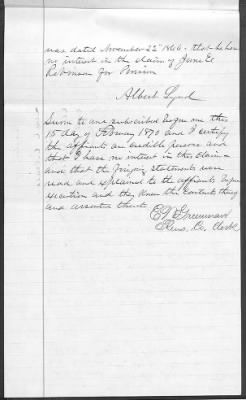 was dated November 22d 1866 - that he has
no interest in the claim of Jane E.
Robinson for Pension
Albert Lynd
Sworn to and subscribed before me this
15 day of February 1870 and I certify
the affiants are credible persons and
that I have no interest in this claim -
and that the foregoing statements were
read and explained to the affiants before
execution and they knew the contents thereof
and assented thereto
Co. Clerk